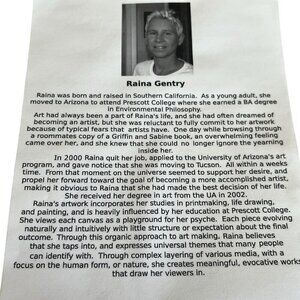 Raina Gentry
Raina was born and raised in Southern California. As a young adult, she
moved to Arizona to attend Prescott College where she earned a BA degree
in Environmental Philosophy.
Art had always been a part of Raina's life, and she had often dreamed of
becoming an artist, but she was reluctant to fully commit to her artwork
because of typical fears that artists have. One day while browsing through
a roommates copy of a Griffin and Sabine book, an overwhelming feeling
came over her, and she knew that she could no longer ignore the yearning
inside her.
In 2000 Raina quit her job, applied to the University of Arizona's art
program, and gave notice that she was moving to Tucson. All within a weeks
time. From that moment on the universe seemed to support her desire, and
propel her forward toward the goal of becoming a more accomplished artist,
making it obvious to Raina that she had made the best decision of her life.
She received her degree in art from the UA in 2002.
Raina's artwork incorporates her studies in printmaking, life drawing,
and painting, and is heavily influenced by her education at Prescott College.
She views each canvas as a playground for her psyche. Each piece evolving
naturally and intuitively with little structure or expectation about the final
outcome. Through this organic approach to art making, Raina believes
that she taps into, and expresses universal themes that many people
can identify with. Through complex layering of various media, with a
focus on the human form, or nature, she creates meaningful, evocative works
that draw her viewers in.